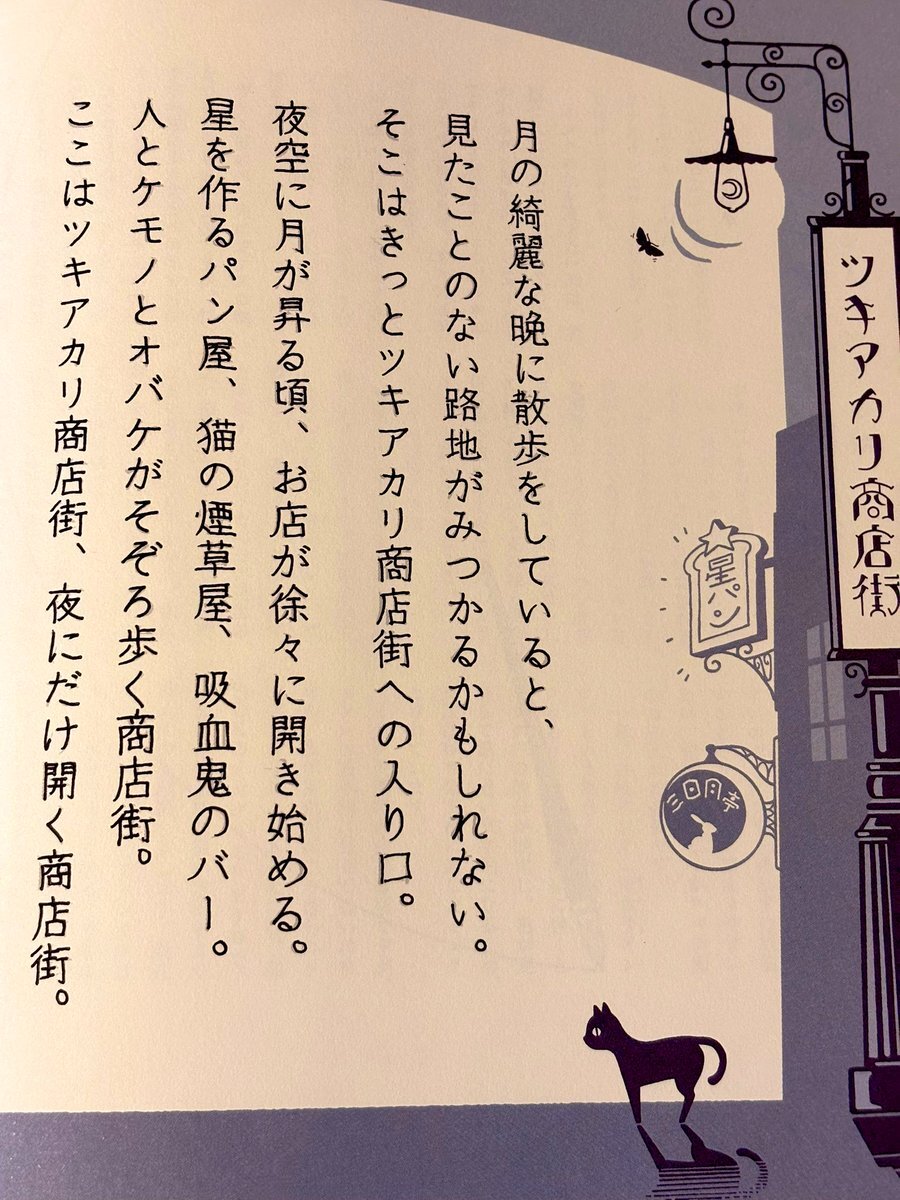 月の綺麗な晩に散歩をしていると、
見たことのない路地がみつかるかもしれない。
そこはきっとツキアカリ商店街への入り口。
夜空に月が昇る頃、お店が徐々に開き始める。
星を作るパン屋、猫の煙草屋、吸血鬼のバー。
人とケモノとオバケがそぞろ歩く商店街。
ここはツキアカリ商店街、夜にだけ開く商店街。
ツキアカリ商店街
星パン
三日月亭